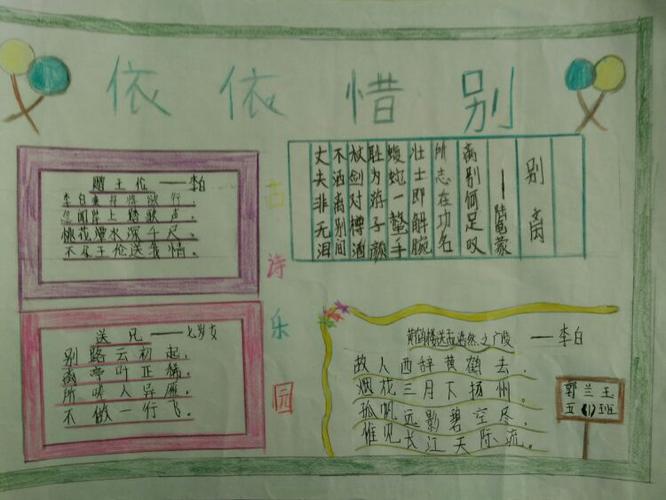 依依惜别
赠王伦——李白
李白乘舟将欲行,
忽闻岸上踏歌声。
桃花潭水深千尺,
不及王伦送我情。
古诗乐园
别离
——陆龟蒙
离别何足叹
所志在功名
壮士即解腕
蝮蛇一螫手
耻为游子颜
仗剑对樽酒
不洒离别间
丈夫非无泪
送兄——七岁女
别路云初起,
离亭叶正稀。
所嗟人异雁,
不做一行飞。
黄鹤楼送孟浩然之广陵——李白
故人西辞黄鹤去,
烟花三月下扬州。
孤帆远影碧空尽,
惟见长江天际流。
郭兰玉
五(1)班